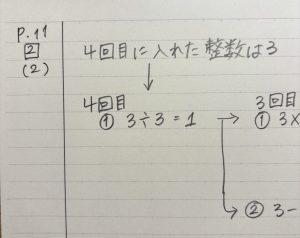 P.11
2
(2)
4回目に入れた整数は3
4回目
① 3÷3=1
3回目
① 3×
② 3-